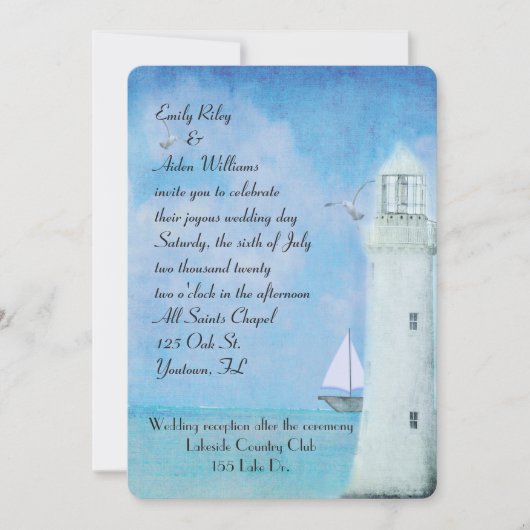 Emily Riley
&
Aiden Williams
invite you to celebrate
their joyous wedding day
Saturdy, the sixth of July
two thousand twenty
two o'clock in the afternoon
All Saints Chapel
125 Oak St.
Youtown, FL
Wedding reception after the ceremony
Lakeside Country Club
155 Lake Dr.